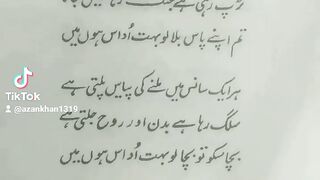 تڑپ رہی ہے
تم اپنے پاس بلا لو بہت اُداس ہوں میں
ہر ایک سانس میں ملنے کی پیاس پلتی ہے
سلگ رہا ہے بدن اور روح جلتی ہے
بچا سکو تو بچا لو بہت اُداس ہوں میں
TikTok
@azankhan1319